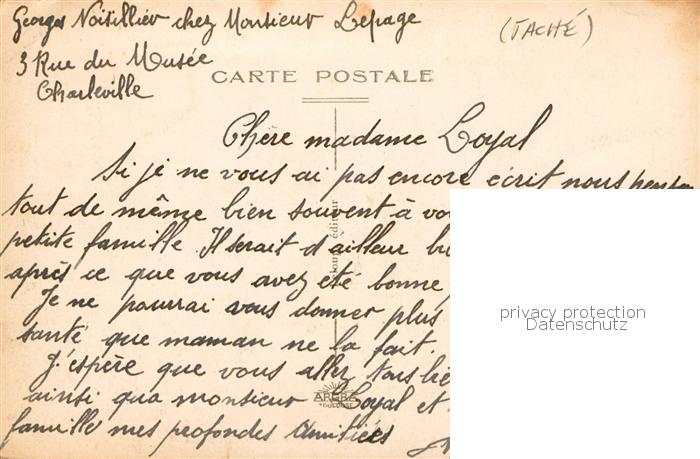 Georges Noisillier chez Monsieur Lepage
(TACHÉ)
3 Rue du Musée
Charleville
CARTE POSTALE
Chère madame Loyal
Si je ne vous ai pas encore écrit nous
tout de même bien souvent à
petite famille. Il serait d'ailleur
après ce que vous avez été bonne
privacy protection
Datenschutz
Je ne pourrai vous donner plus
santé que maman ne la fait.
J'espère que vous allez tous
ainsi qua monsieur Loyal et
famille mes profondes Amitiées